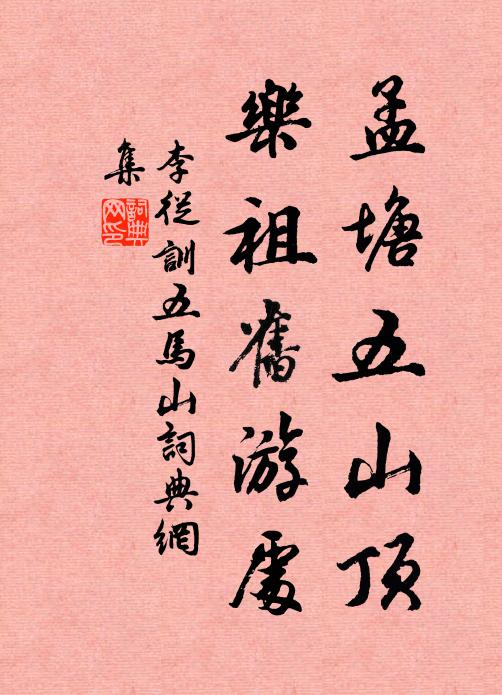 孟塘五山頂
樂祖舊游處
李從訓五馬山詞典網
集
詞典
网印